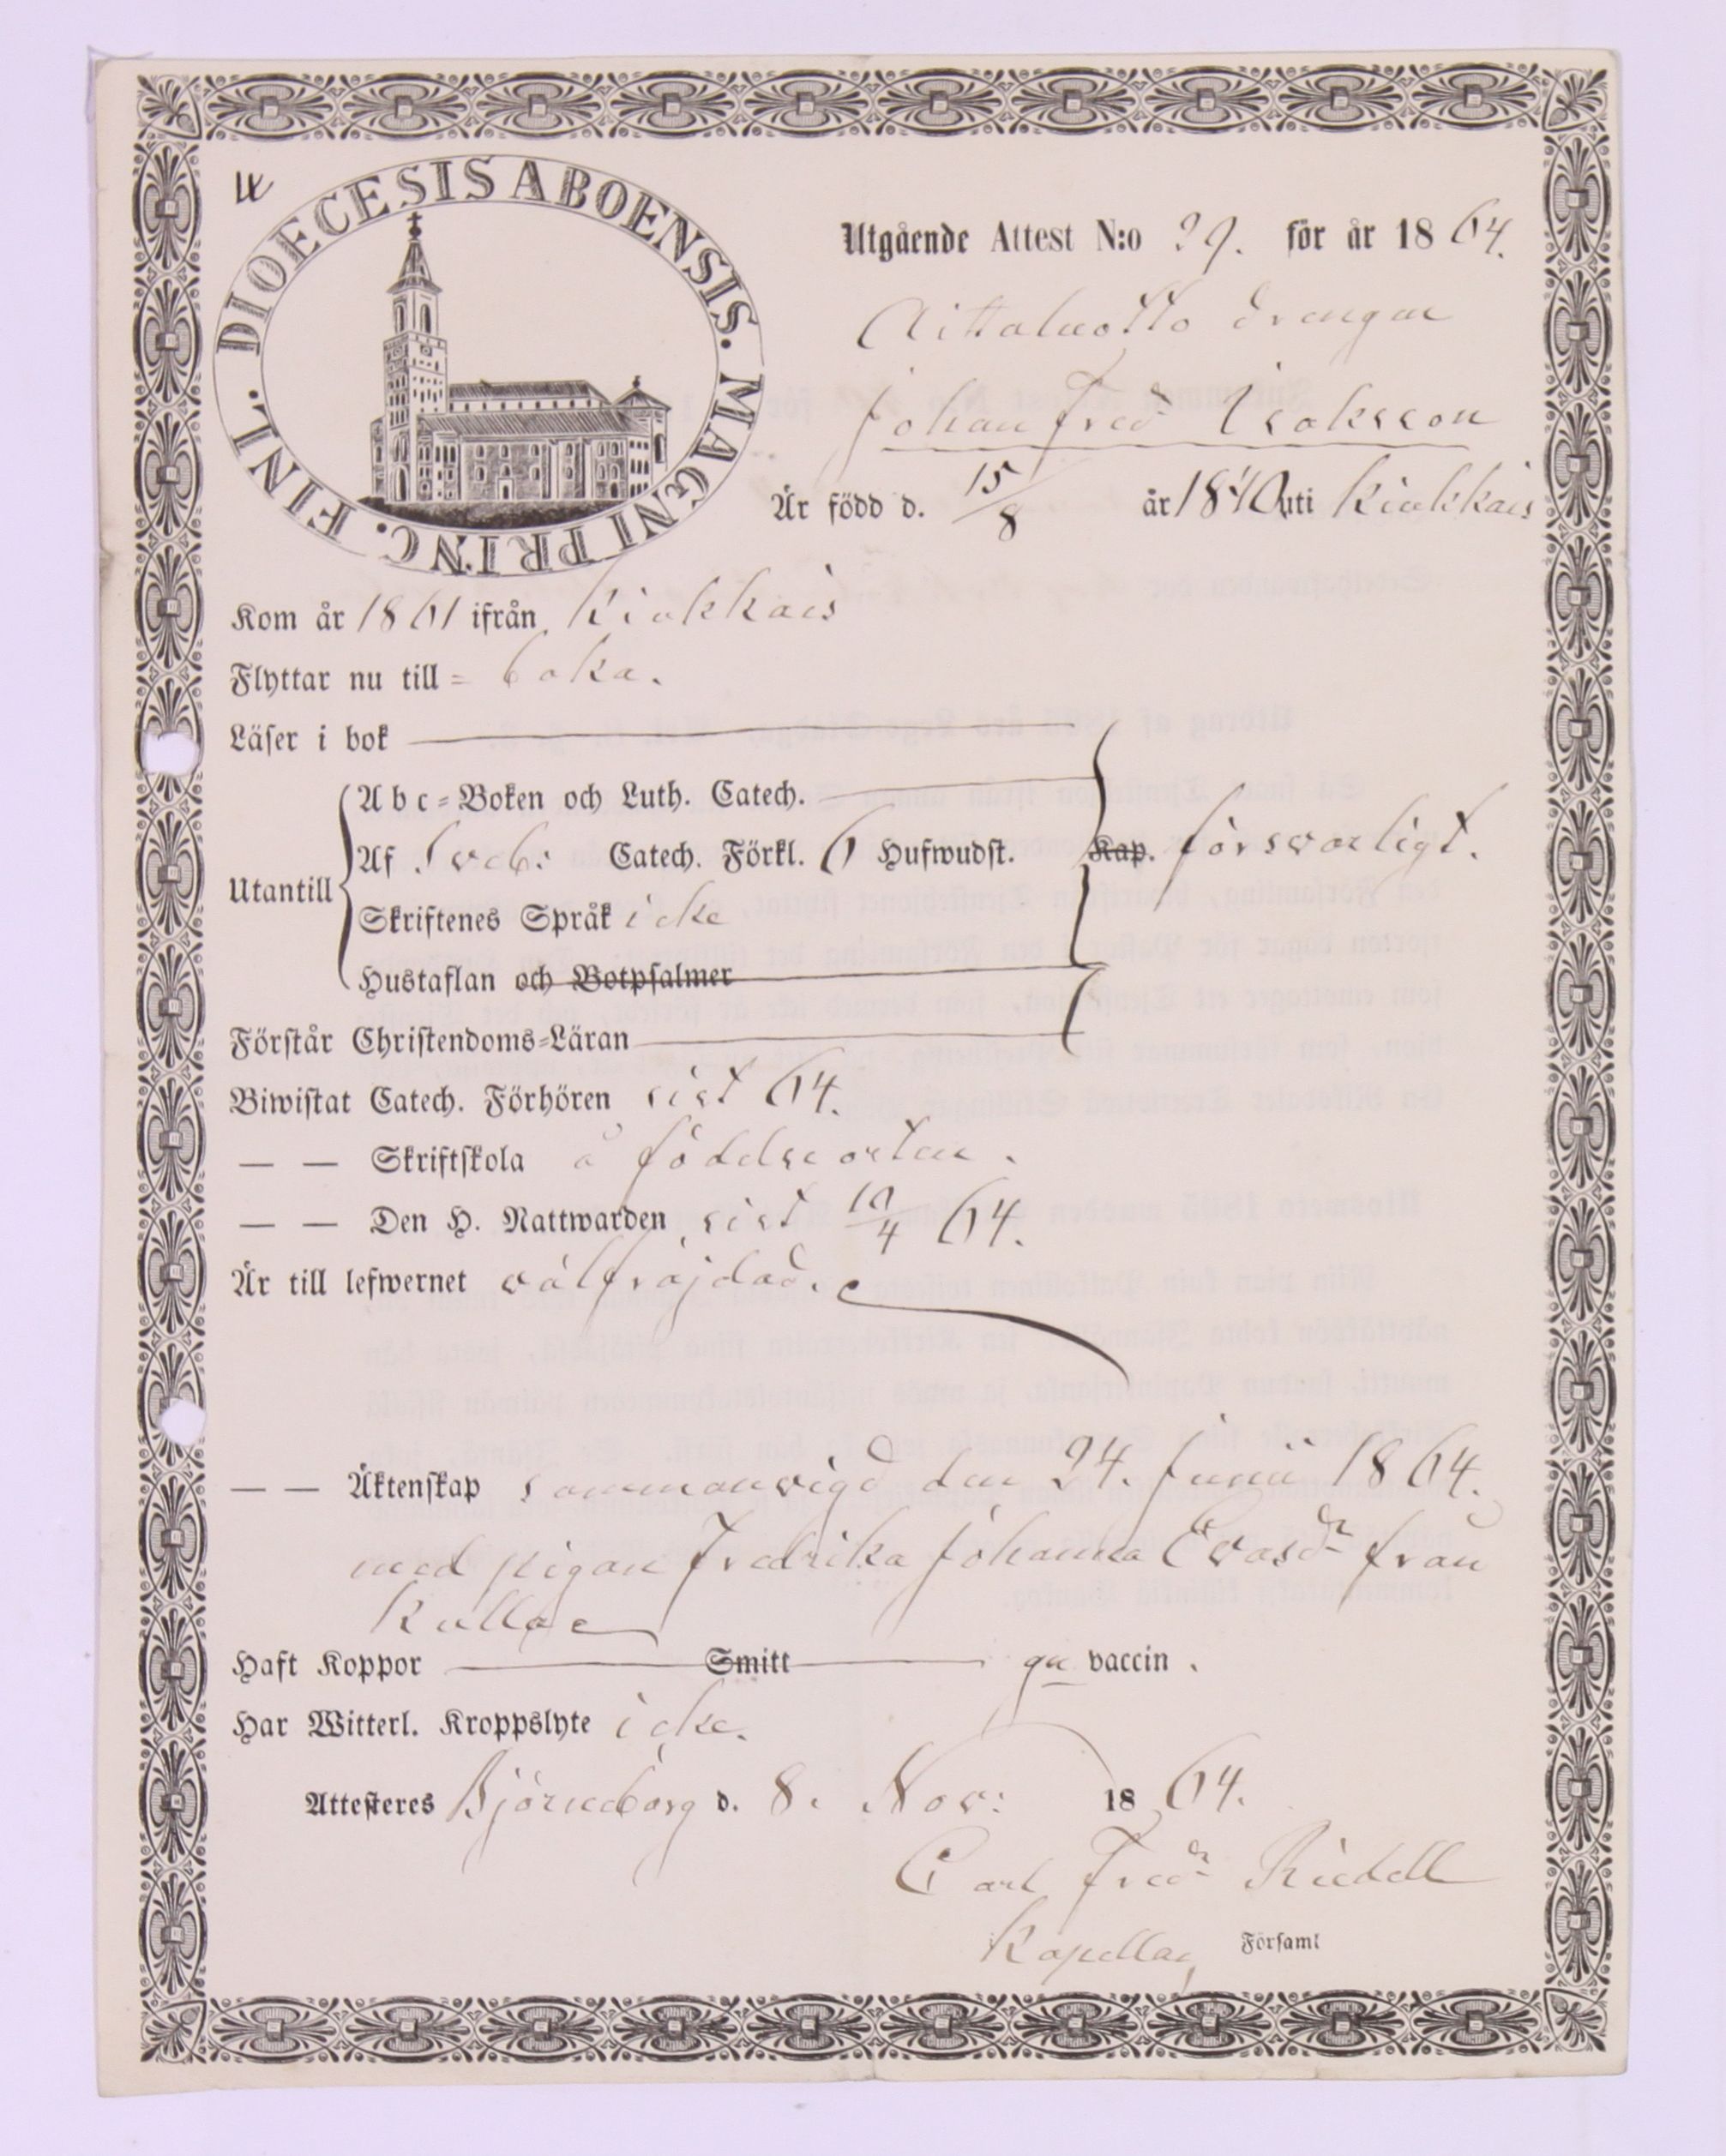 DIOECESIS ABOENSIS. MAGNI PRINC. FINL.
Utgående Attest N:o 29. för år 1864.
Aittaluotto drengen
Johan Fred Isaksson
Är född d. 15/8 år 1840 uti Kiukkais
Kom år 1861 ifrån Kiukkais
Flyttar nu till =
Läser i bok
Utantill
Abc=Boken och Luth. Catech.
Af Sveb: Catech. Förkl. 6 Hufwudst. Kap. försvarligt.
Skriftenes Språk icke
Hustaflan och Botpsalmer
Förstår Christendoms=Läran
Biwistat Catech. Förhören sist 64.
— — Skriftskola å födelseorten.
— — Den H. Nattwarden sist 10/4 64.
Är till lefwernet välfräjdad.
— — Äktenskap sammanvigd den 24. Junii 1864.
med pigan Fredrika Johanna Evasdr från
Kullaa
Haft Koppor Smitt vaccin.
Har Witterl. Kroppslyte icke.
Attesteres Björneborg d. 8. Nov: 1864.
Carl Fredr Riedell
Kapellan Församl